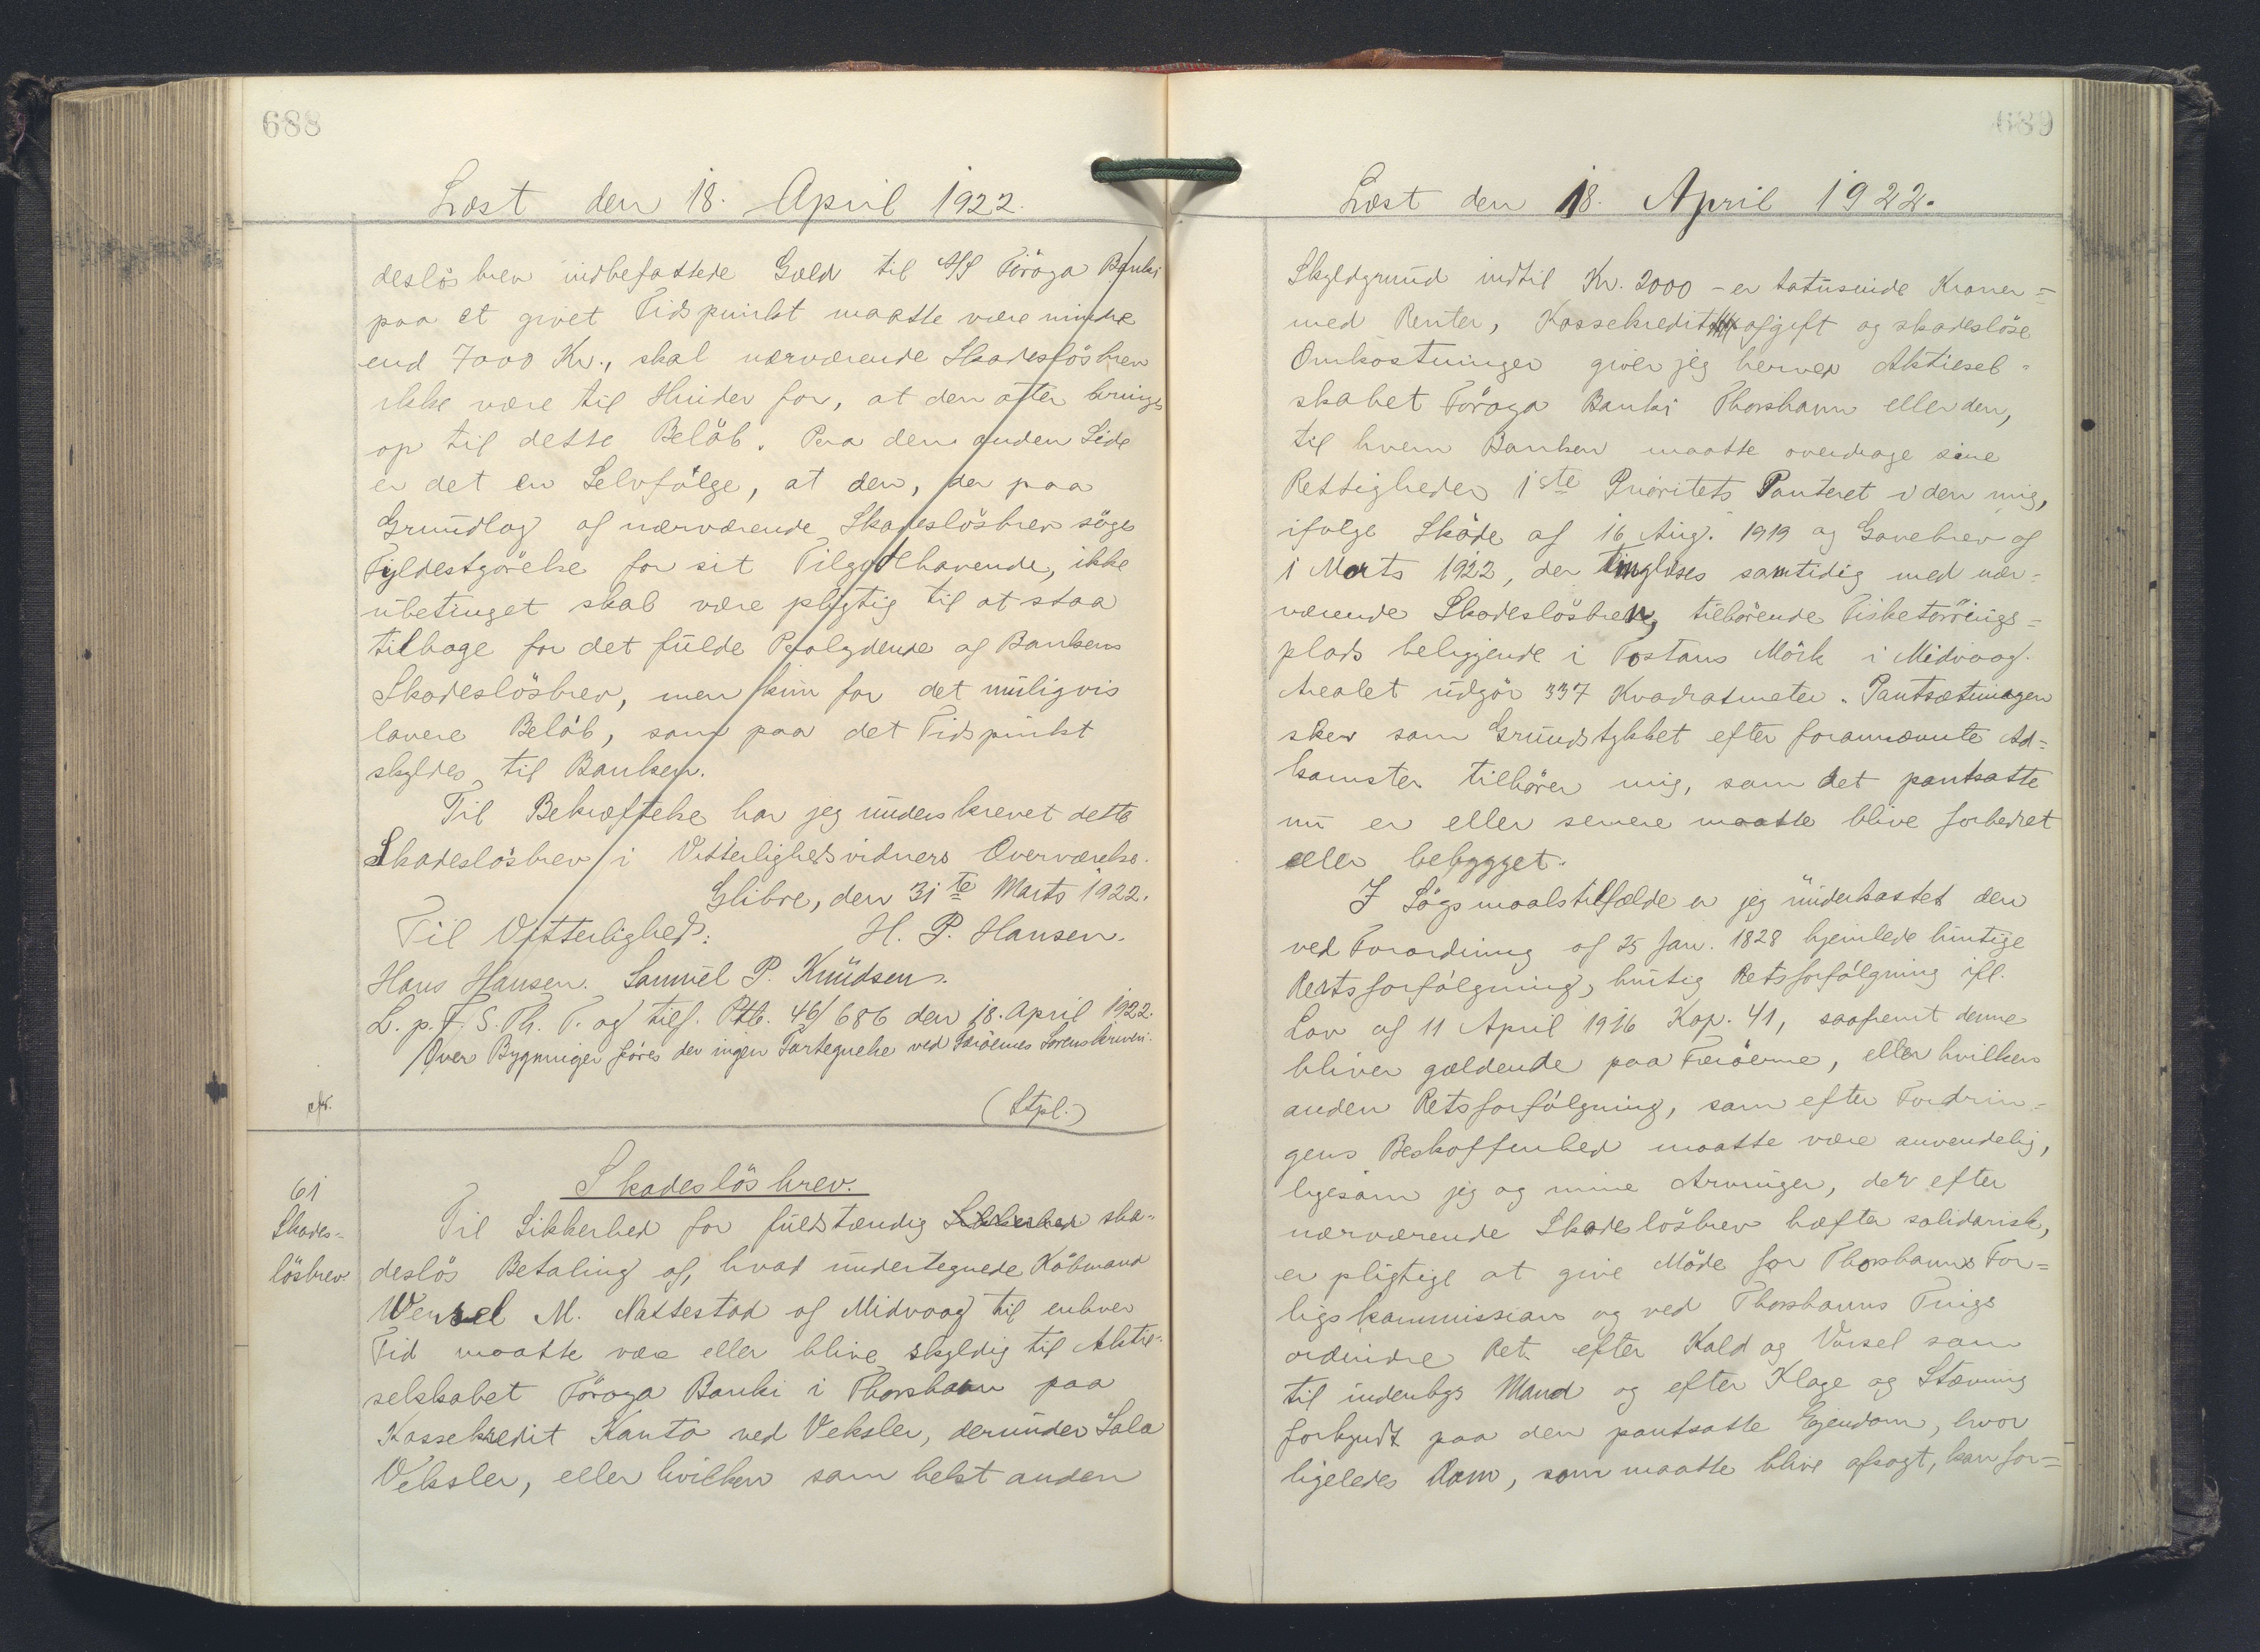 688
Læst den 18. April 1922.
deslösbrev indbefattede Gæld til A/S Föroya Banki
paa et givet Tidspunkt maatte være mindre
end 7000 Kr., skal nærværende Skadeslösbrev
ikke være til Hinder for, at den atter bringes
op til dette Belöb. Paa den anden Side
er det en Selvfölge, at den, der paa
Grundlag af nærværende Skadeslösbrev söge
Fyldestgörelse for sit Tilgodehavende, ikke
ubetinget skal være pligtig til at staa
tilbage for det fulde Paalydende af Bankens
Skadeslösbrev, men kun for det muligvis
lavere Belöb, som paa det Tidspunkt
skyldes til Banken.
Til Bekræftelse har jeg underskrevet dette
Skadeslösbrev i Vitterlighedsvidners Overværelse.
Glibre, den 31te Marts 1922.
Til Vitterlighed: H. P. Hansen.
Hans Hansen. Samuel P. Knudsen.
L. p. F. S. Th. T. og tilf. Ptb. 46/686 den 18. April 1922.
Over Bygninger föres der ingen Fortegnelse ved Færöernes Sorenskriveri.
cfr.
(Stpl.)
61
Skades-
lösbrev.
Skadeslösbrev.
Til Sikkerhed for fuldstændig Sikkerhed ska-
deslös Betaling af, hvad undertegnede Köbmand
Wensel M. Nattestad af Midvaag til enhver
Tid maatte væe eller blive skyldig til Aktie-
selskabet Föroya Banki i Thorshavn paa
Kassekredit Konto ved Veksler, derunder Sola
Veksler, eller hvilken som helst anden
689
Læst den 18. April 1922.
Skyldgrund indtil Kr. 2000 - er totusinde Kroner =
med Renter, Kassekreditafgift og skadeslöse
Omkostninger giver jeg herved Aktiesel-
skabet Föroya Banki Thorshavn eller den,
til hvem Banken maatte overdrage sine
Rettigheder 1ste Prioritets Panteret i den mig,
ifölge Sköde af 16 Aug. 1919 og Gavebrev af
1 Marts 1922, der tinglæses samtidig med nær-
værende Skadeslösbrev, tilhörende Fisketörrings-
plads beliggende i Tostans Mörk i Midvaag.
Arealet udgör 337 Kvadratmeter. Pantsætningen
sker som Grundstykket efter forannævnte Ad-
komster tilhörer mig, som det pantsatte
nu er eller senere maatte blive forbedret
eller bebygget.
I Sögsmaalstilfælde er jeg underkastet den
ved Forordning af 25 Jan. 1828 hjemlede hurtige
Retsforfölgning, hurtig Retsforfölgning ifl.
Lov af 11 April 1916 Kap. 41, saafremt denne
bliver gældende paa Færöerne, eller hvilken
anden Retsforfölgning, som efter Fordrin-
gens Beskaffenhed maatte være anvendelig,
ligesom jeg og mine Arvinger, der efter
nærværende Skadeslösbrev hæfter solidarisk,
er pligtige at give Möde for Thorshavns For-
ligskommission og ved Thorshavns Tings
ordinære Ret efter Kald og Varsel som
til indenbys Mand og efter Klage og Stævning
forkyndt paa den pantsatte Ejendom, hvor
ligeledes Dom, som maatte blive afsagt, kan for-